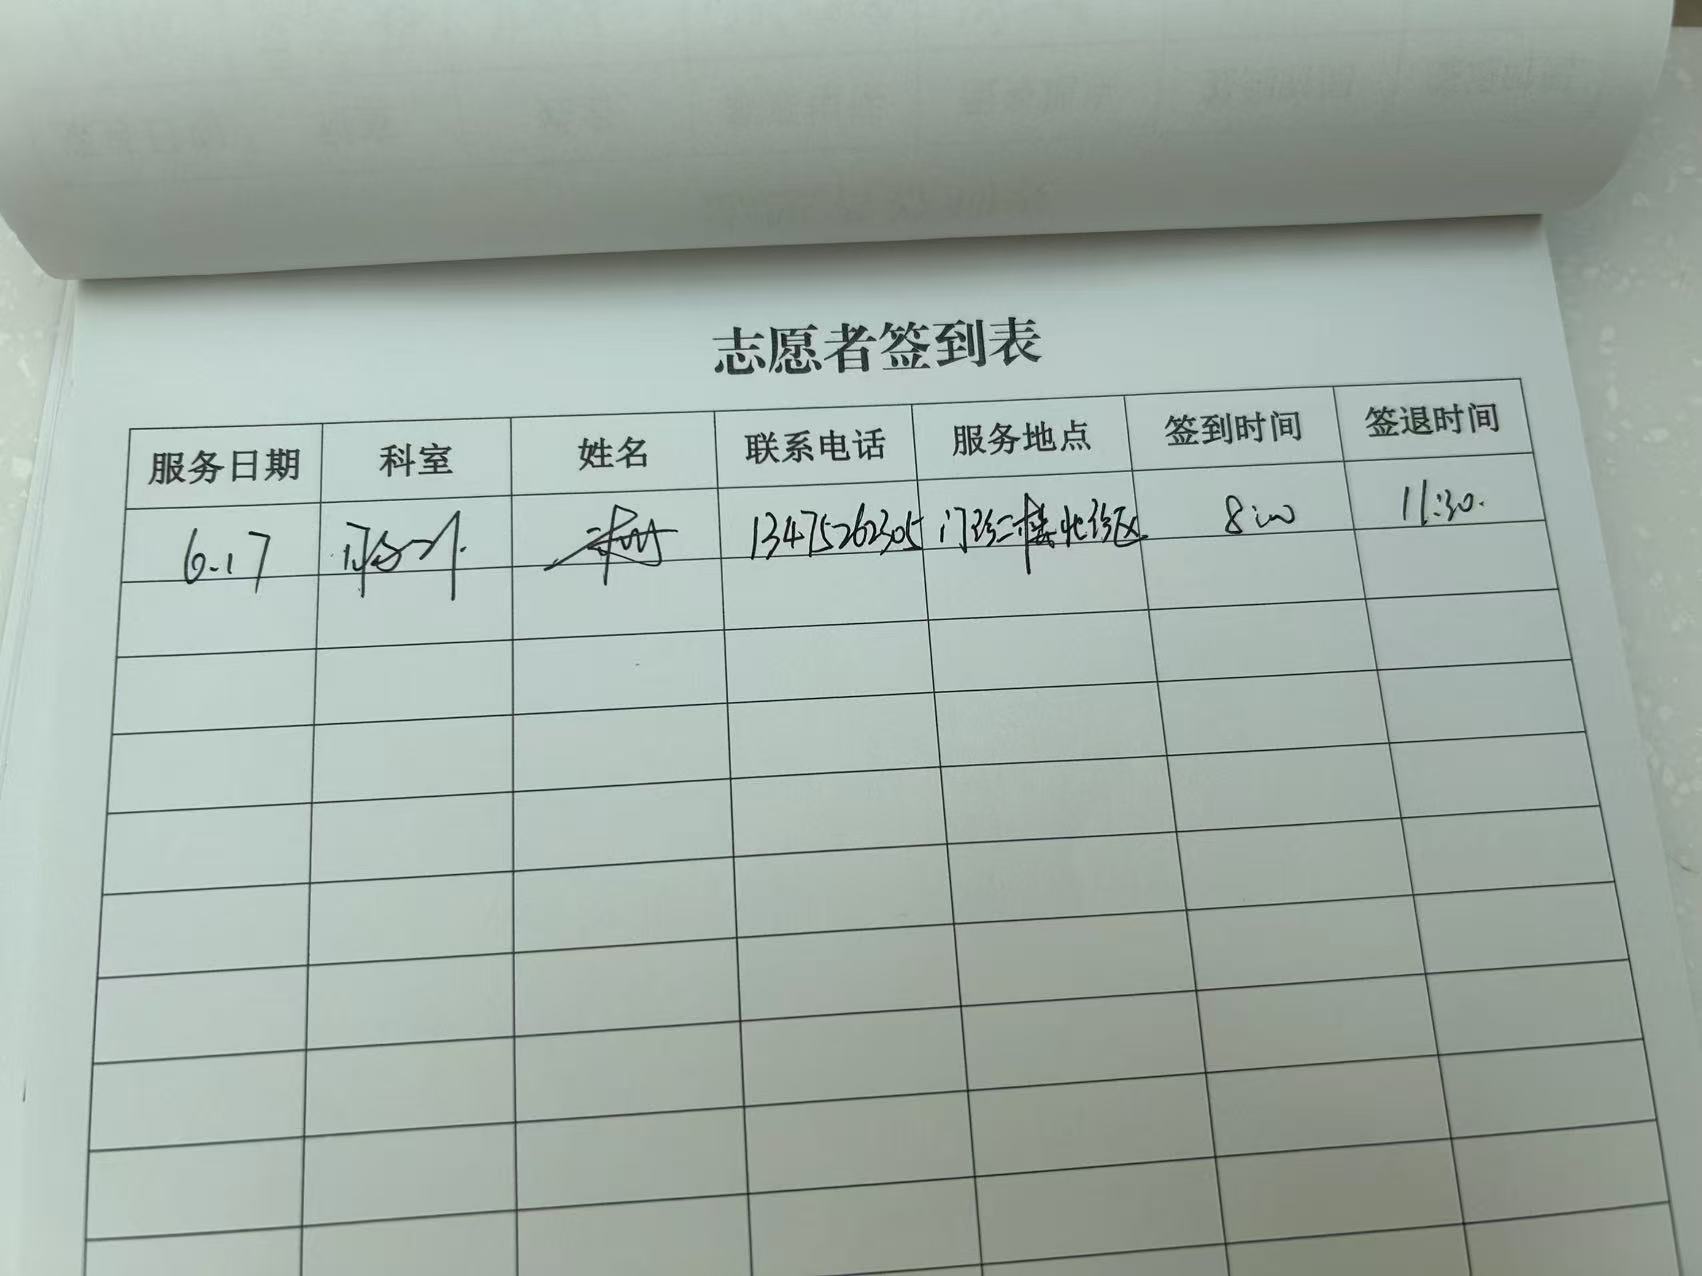 志愿者签到表
服务日期 科室 姓名 联系电话 服务地点 签到时间 签退时间
6.17 13475262305 门诊二楼北诊区 8:00 11:30.